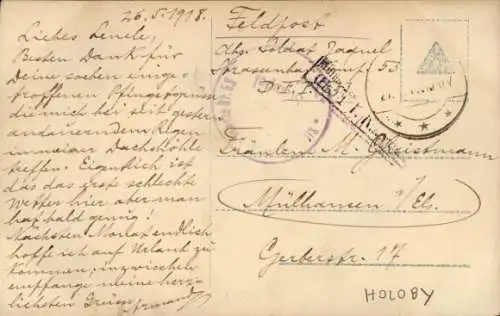 26.5.1918.
Liebes Lenele,
Besten Dank für
Deine soeben einge-
troffenen Pfingstgrüsse
die mich bei seit gestern
andauerndem Regen
in meiner Dachshöhle
treffen. Eigentlich ist
das das erste schlechte
Wetter hier aber man
hat bald genug!
Nächsten Monat endlich
hoffe ich auf Urlaub zu
kommen, inzwischen
empfange meine herz-
lichsten Grüsse Armand
Feldpost
Abs. Soldat
Strassenbau 53
D.F.P.
Fräulein M.
Mülhausen i/Els.
Gerberstr. 17
HOLOBY